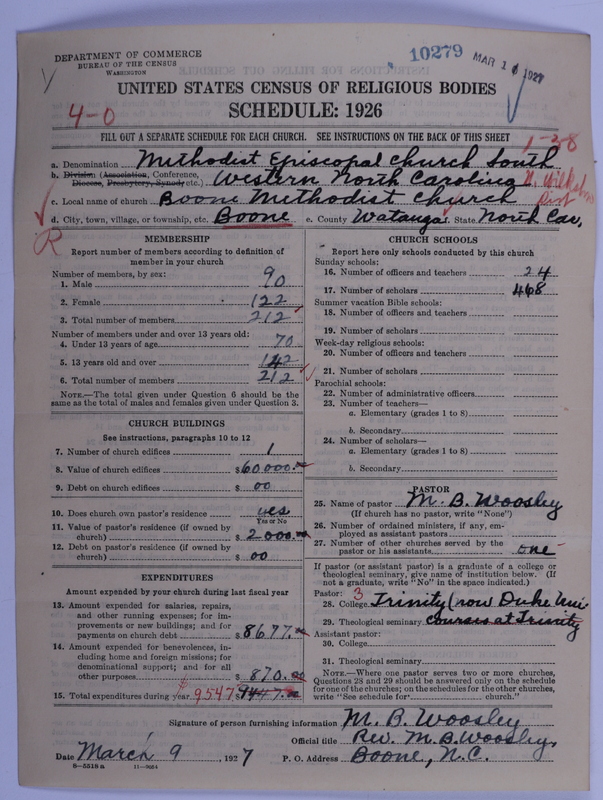 DEPARTMENT OF COMMERCE
BUREAU OF THE CENSUS
WASHINGTON
10279
MAR 1 1927
UNITED STATES CENSUS OF RELIGIOUS BODIES
SCHEDULE: 1926
4-0
FILL OUT A SEPARATE SCHEDULE FOR EACH CHURCH. SEE INSTRUCTIONS ON THE BACK OF THIS SHEET
1-38
a. Denomination Methodist Episcopal Church South
b. Division (Association, Conference, Diocese, Presbytery, Synod, etc.) Western North Carolina N. Wilkesboro Dist
c. Local name of church Boone Methodist Church
d. City, town, village, or township, etc. Boone e. County Watauga f. State North Car,
R
MEMBERSHIP
Report number of members according to definition of
member in your church
Number of members, by sex:
1. Male 90
2. Female 122
3. Total number of members 212
Number of members under and over 13 years old:
4. Under 13 years of age 70
5. 13 years old and over 142
6. Total number of members 212
NOTE.—The total given under Question 6 should be the
same as the total of males and females given under Question 3.
CHURCH BUILDINGS
See instructions, paragraphs 10 to 12
7. Number of church edifices 1
8. Value of church edifices $60000.00
9. Debt on church edifices $ 00
10. Does church own pastor's residence yes
Yes or No
11. Value of pastor's residence (if owned by
church) $2000.00
12. Debt on pastor's residence (if owned by
church) $ 00
EXPENDITURES
Amount expended by church during last fiscal year
13. Amount expended for salaries, repairs,
and other running expenses; for im-
provements or new buildings; and for
payments on church debt $8677.00
14. Amount expended for benevolences, in-
cluding home and foreign missions; for
denominational support; and for all
other purposes $870.00
15. Total expenditures during year 9547 9447.00
CHURCH SCHOOLS
Report here only schools conducted by this church
Sunday schools:
16. Number of officers and teachers 24
17. Number of scholars 468
Summer vacation Bible schools:
18. Number of officers and teachers
19. Number of scholars
Week-day religious schools:
20. Number of officers and teachers
21. Number of scholars
Parochial schools:
22. Number of administrative officers
23. Number of teachers—
a. Elementary (grades 1 to 8)
b. Secondary
24. Number of scholars—
a. Elementary (grades 1 to 8)
b. Secondary
PASTOR
25. Name of pastor M. B. Woosley
(If church has no pastor, write "None")
26. Number of ordained ministers, if any, em-
ployed as assistant pastors
27. Number of other churches served by the
pastor or his assistants one
If pastor (or assistant pastor) is a graduate of a college or
theological seminary, give name of institution below. (If
not a graduate, write "No" in the space indicated.)
Pastor: 3
28. College Trinity (now Duke Uni.
29. Theological seminary courses at Trinity
Assistant pastor:
30. College
31. Theological seminary
NOTE.—Where one pastor serves two or more churches,
Questions 28 and 29 should be answered only on the schedule
for one of the churches; on the schedules for the other churches,
write "See schedule for church."
Signature of person furnishing information M. B. Woosley
Official title Rev. M. B. Woosley,
Date March 9 1927 P. O. Address Boone, N.C.
8—5518 a 11—9054